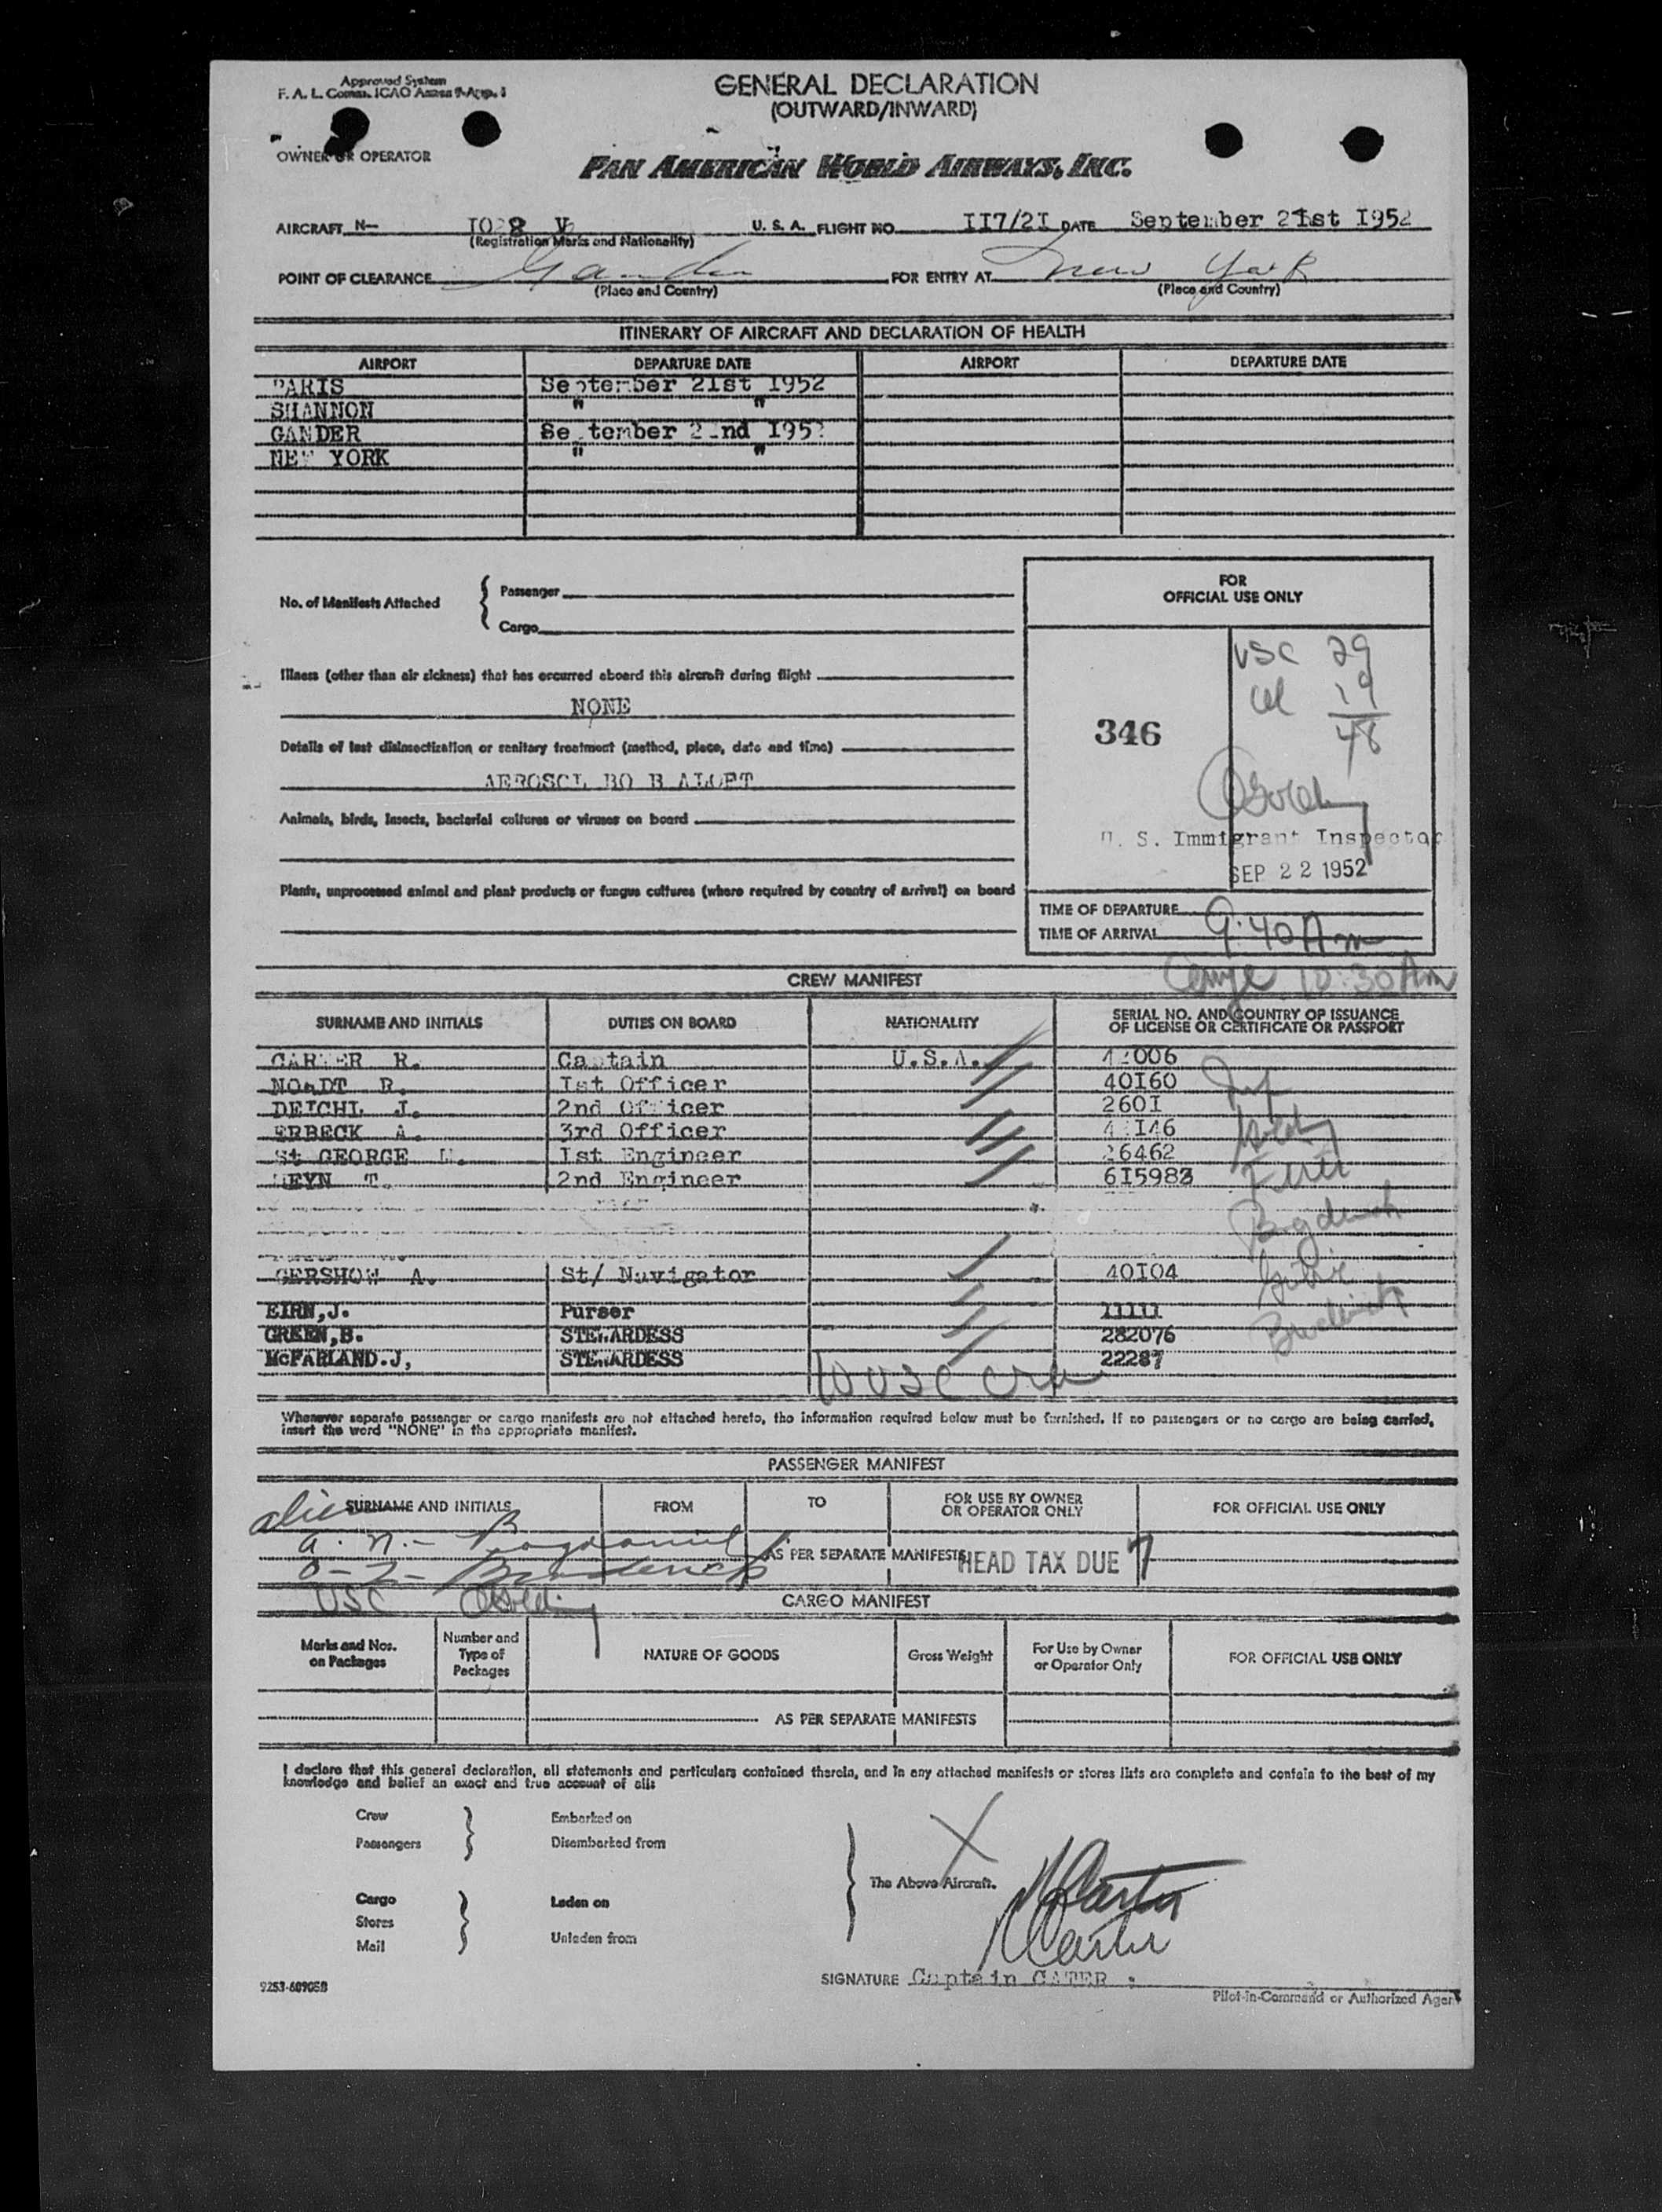 Approved System
F. A. L. Comm. ICAO Annex 9-App. 1
GENERAL DECLARATION
(OUTWARD/INWARD)
OWNER OR OPERATOR
PAN AMERICAN WORLD AIRWAYS, INC.
AIRCRAFT N- 1028 V U. S. A. FLIGHT NO. II7/2I DATE September 21st I952
(Registration Marks and Nationality)
POINT OF CLEARANCE Gander FOR ENTRY AT New York
(Place and Country) (Place and Country)
ITINERARY OF AIRCRAFT AND DECLARATION OF HEALTH
AIRPORT DEPARTURE DATE AIRPORT DEPARTURE DATE
PARIS September 21st I952
SHANNON " "
GANDER September 22nd I952
NEW YORK " "
No. of Manifests Attached { Passenger
Cargo
FOR
OFFICIAL USE ONLY
USC 29
19
48
346
U. S. Immigrant Inspector
SEP 22 1952
Illness (other than air sickness) that has occurred aboard this aircraft during flight
NONE
Details of last disinsectization or sanitary treatment (method, place, date and time)
AEROSOL BO B ALOFT
Animals, birds, insects, bacterial cultures or viruses on board
Plants, unprocessed animal and plant products or fungus cultures (where required by country of arrival) on board
TIME OF DEPARTURE
TIME OF ARRIVAL 9:40 Am
10:30 Am
CREW MANIFEST
SURNAME AND INITIALS DUTIES ON BOARD NATIONALITY SERIAL NO. AND COUNTRY OF ISSUANCE OF LICENSE OR CERTIFICATE OR PASSPORT
CARTER R. Captain U.S.A. 006
R. Ist Officer 40I60
DEICHL J. 2nd Officer 260I
ERBECK A. 3rd Officer I46
St GEORGE Ist Engineer 26462
T. 2nd Engineer 6I5983
GERSHOW A. St/ Navigator 40I04
EIRN,J. Purser 11111
GREEN,B. STEWARDESS 282076
McFARLAND.J, STEWARDESS 22287
10 USC Crew
Whenever separate passenger or cargo manifests are not attached hereto, the information required below must be furnished. If no passengers or no cargo are being carried,
insert the word "NONE" in the appropriate manifest.
PASSENGER MANIFEST
SURNAME AND INITIALS FROM TO FOR USE BY OWNER OR OPERATOR ONLY FOR OFFICIAL USE ONLY
AS PER SEPARATE MANIFESTS HEAD TAX DUE 7
USC
CARGO MANIFEST
Marks and Nos. on Packages Number and Type of Packages NATURE OF GOODS Gross Weight For Use by Owner or Operator Only FOR OFFICIAL USE ONLY
AS PER SEPARATE MANIFESTS
I declare that this general declaration, all statements and particulars contained therein, and in any attached manifests or stores lists are complete and contain to the best of my
knowledge and belief an exact and true account of all:
Crew } Embarked on
Passengers Disembarked from
} The Above Aircraft.
Cargo Laden on
Stores }
Mail Unladen from
R Carter
R Carter
SIGNATURE Captain CATER
Pilot-in-Command or Authorized Agent
9253-60905B